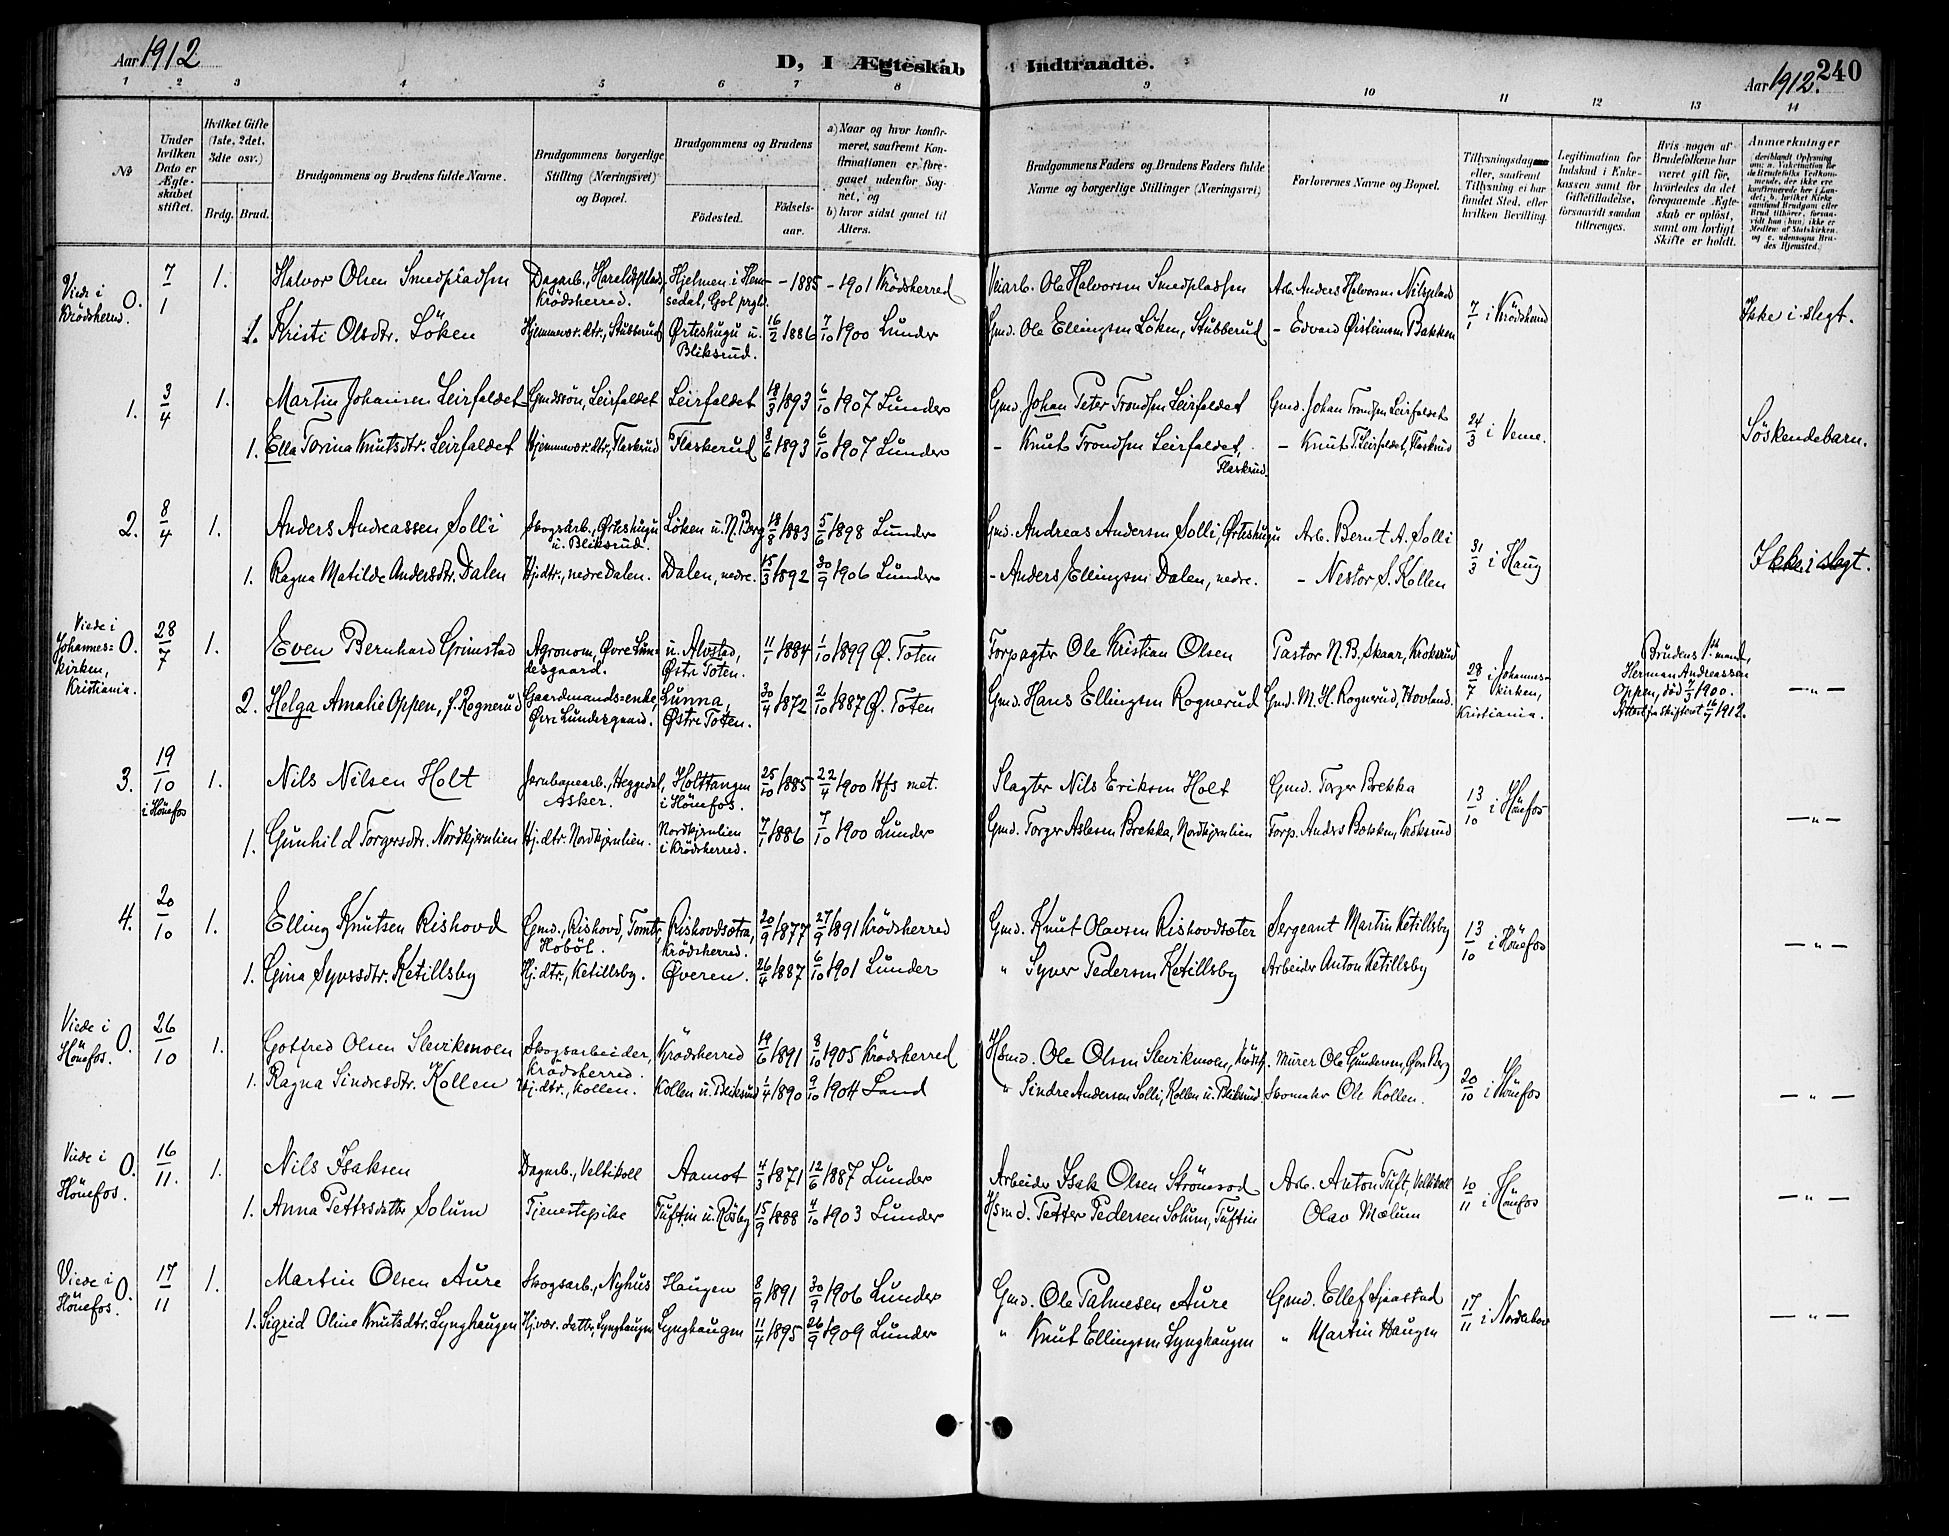 Aar 1912
D, I Ægteskab Indtraadte.
Aar 1912. 240
1 2 3 4 5 6 7 8 9 10 11 12 13 14
№
Under hvilken Dato er Ægteskabet stiftet.
Hvilket Gifte (1ste, 2det, 3die osv.)
Brdg. Brud.
Brudgommens og Brudens fulde Navne.
Brudgommens borgerlige Stilling (Næringsvei) og Bopæl.
Brudgommens og Brudens
Födested.
Födselsaar.
a) Naar og hvor konfirmeret, saafremt Konfirmationen er foregaaet udenfor Sognet, og
b) hvor sidst gaaet til Alters.
Brudgommens Faders og Brudens Faders fulde Navne og borgerlige Stillinger (Næringsvei)
Forlovernes Navne og Bopæl.
Tillysningsdagen eller, saafremt Tillysning ei har fundet Sted, efter hvilken Bevilling.
Legitimation for Indskud i Enkekassen samt for Giftetilladelse, forsaavidt saadan tiltrænges.
Hvis nogen af Brudefolkene har været gift før, hvorledes da det foregaaende Ægteskab er opløst, samt om lovligt Skifte er holdt.
Anmerkninger
Viede i Krödsherred O. 7/1 1. Halvor Olsen Smedpladsen Dagarb., Haraldsplads, Krödsherred. Hjelmen i Hemsedal, Gol prgld. - 1885 - 1901 Krödsherred Veiarb. Ole Halvorsen Smedpladsen Arb. Anders Halvorsen Nilsplads 7/1 i Krödsherred Ikke i slegt.
1. Kristi Olsdtr. Löken Hjemmevær. dtr., Stubberud Örteshugu u. Bliksrud. 16/2 1886 7/10 1900 Lunder Gmd. Ole Ellingsen Löken, Stubberud - Edvard Öistensen Bakken
1. 3/4 1. Martin Johansen Leirfaldet Gmdssön, Leirfaldet Leirfaldet 18/3 1893 6/10 1907 Lunder Gmd. Johan Peter Trondsen Leirfaldet Gmd. Johan Trondsen Leirfaldet 24/3 i Veme. Söskendebarn.
1. Ella Torina Knutsdtr. Leirfaldet Hjemmevær. dtr., Flaskerud Flaskerud 8/6 1893 6/10 1907 Lunder - Knut Trondsen Leirfaldet, Flaskrud. - Knut T. Leirfaldet, Flaskrud
2. 8/4 1. Anders Andreassen Solli Skogsarb., Örteshugu u. Bliksrud. Löken u. N. Berg 18/8 1883 5/6 1898 Lunder Gmd. Andreas Andersen Solli, Örteshugu Arb. Bernt A. Solli 31/3 i Haug Ikke i slegt.
1. Ragna Matilde Andersdtr. Dalen Hj. dtr., nedre Dalen. Dalen, nedre. 15/3 1892 30/9 1906 Lunder - Anders Ellingsen Dalen, nedre. - Nestor S. Kollen
Viede i Johanneskirken, Kristiania. O. 28/7 1. Even Bernhard Grimstad Agronom, Övre Lundesgaard. u. Alvstad, Östre Toten. 11/1 1884 1/10 1899 Ö. Toten Forpagter Ole Kristian Olsen Pastor N. B. Skaar, Kroksrud 28/7 i Johanneskirken, Kristiania. Brudens 1ste mand, Herman Andreassen Oppen, död 7/3 1900. Attest fra skifteret 16/7 1912. - „ -
2. Helga Amalie Oppen, f. Rognerud Gaardmandsenke, Övre Lundesgaard. Lunna, Östre Toten. 30/4 1872 2/10 1887 Ö. Toten Gmd. Hans Ellingsen Rognerud Gmd. M. H. Rognerud, Hovland.
3. 19/10 i Hönefos 1. Nils Nilsen Holt Jernbanearb., Heggedal, Asker. Holttangen i Hönefos. 25/10 1885 22/4 1900 Hfs met. Slagter Nils Eriksen Holt Gmd. Torger Brekka 13/10 i Hönefos - „ -
1. Gunhild Torgersdtr. Nordkjernlien Hj. dtr. Nordkjernlien. Nordkjernlien i Krödsherred. 7/1 1886 7/10 1900 Lunder Gmd. Torger Aslesen Brekka, Nordkjernlien Forp. Anders Kroksrud
4. 20/10 1. Elling Knutsen Rishovd Gmd., Rishovd, Tomter, Hoböl. Rishovdsætra, Krödsherred. 20/9 1877 27/9 1891 Krödsherred Gmd. Knut Olavsen Rishovdsæter Sergeant Martin Ketillsby 13/10 i Hönefos - „ -
1. Gina Syversdtr. Ketillsby Hj. dtr., Ketillsby. Överen. 26/4 1887 6/10 1901 Lunder „ Syver Pedersen Ketillsby Arbeider Anton Ketillsby
Viede i Hönefos. O. 26/10 1. Gotfred Olsen Slevikmoen Skogsarbeider, Krödsherred. Krödsherred 19/6 1891 8/10 1905 Krödsherred Hsmd. Ole Olsen Slevikmoen, Krödsh. Murer Ole Gundersen, Berg 20/10 i Hönefos - „ -
1. Ragna Sindresdtr. Kollen Hj. dtr., Kollen. Kollen u. Bliksrud 1/4 1890 9/10 1904 Land „ Sindre Andersen Solli, Kollen u. Bliksrud. Skomaker Ole Kollen.
Viede i Hönefos. O. 16/11. 1. Nils Isaksen Dagarb., Veltikoll Aamot 4/3 1871 12/6 1887 Lunder Arbeider Isak Olsen Strömsod Arb. Anton Tuft, Veltikoll 10/11 i Hönefos - „ -
1. Anna Pettersdatter Solum Tjenestepike Tuftin u. Rösby 15/9 1888 4/10 1903 Lunder Hsmd. Petter Pedersen Solum, Tuftin Olav Mælum
Viede i Hönefos. O. 17/11 1. Martin Olsen Aure Skogsarb., Nyhus Haugen 8/9 1891 30/9 1906 Lunder Gmd. Ole Palmesen Aure Gmd. Ellef Sjaastad 17/11 i Norderhov - „ -
1. Sigrid Oline Knutsdtr. Lynghaugen Hj. vær. datter, Lynghaugen Lynghaugen 11/4 1895 26/9 1909 Lunder „ Knut Ellingsen Lynghaugen „ Martin Haugen